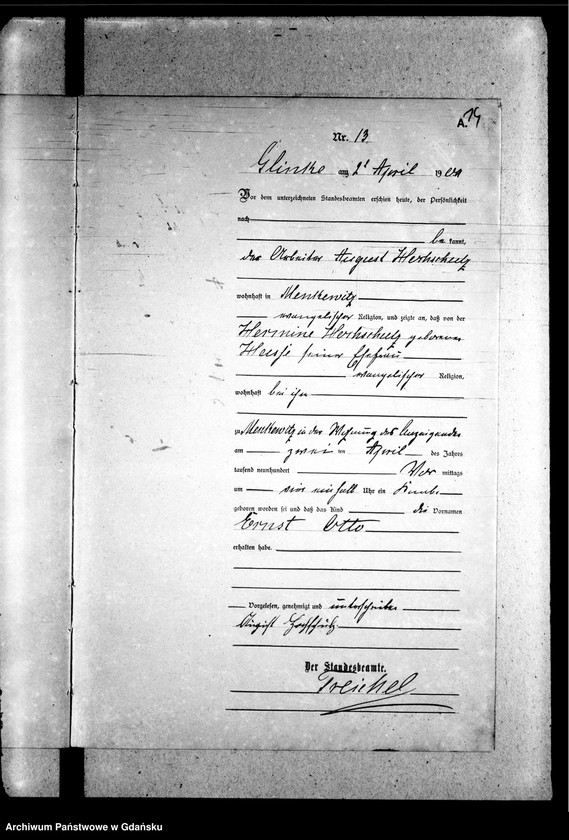 A. 14
Nr. 13
Glinke am 2t April 1900
Vor dem unterzeichneten Standesbeamten erschien heute, der Persönlichkeit
nach
be kannt,
der Arbeiter August
wohnhaft in Menkewitz
evangelischer Religion, und zeigte an, daß von der
Hermine geborenen
seiner Ehefrau
evangelischer Religion,
wohnhaft bei ihm
zu Menkewitz in der Wohnung des Anzeigenden
am zwei ten April des Jahres
tausend neunhundert Vor mittags
um ein einhalb Uhr ein Knabe
geboren worden sei und daß das Kind die Vornamen
Ernst Otto
erhalten habe.
Vorgelesen, genehmigt und unterschrieben
August
Der Standesbeamte.
Treichel
Archiwum Państwowe w Gdańsku